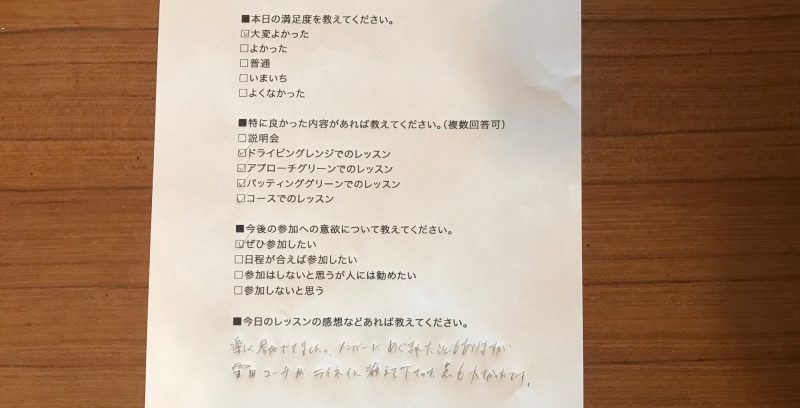 ■本日の満足度を教えてください。
☑大変よかった
□よかった
□普通
□いまいち
□よくなかった
■特に良かった内容があれば教えてください。（複数回答可）
□説明会
☑ドライビングレンジでのレッスン
☑アプローチグリーンでのレッスン
☑パッティンググリーンでのレッスン
☑コースでのレッスン
■今後の参加への意欲について教えてください。
☑ぜひ参加したい
□日程が合えば参加したい
□参加はしないと思うが人には勧めたい
□参加しないと思う
■今日のレッスンの感想などあれば教えてください。
楽しく参加できました。メンバーにめぐまれたこともありますが
コーチがテイネイに教えて下さった点も大きかったです。